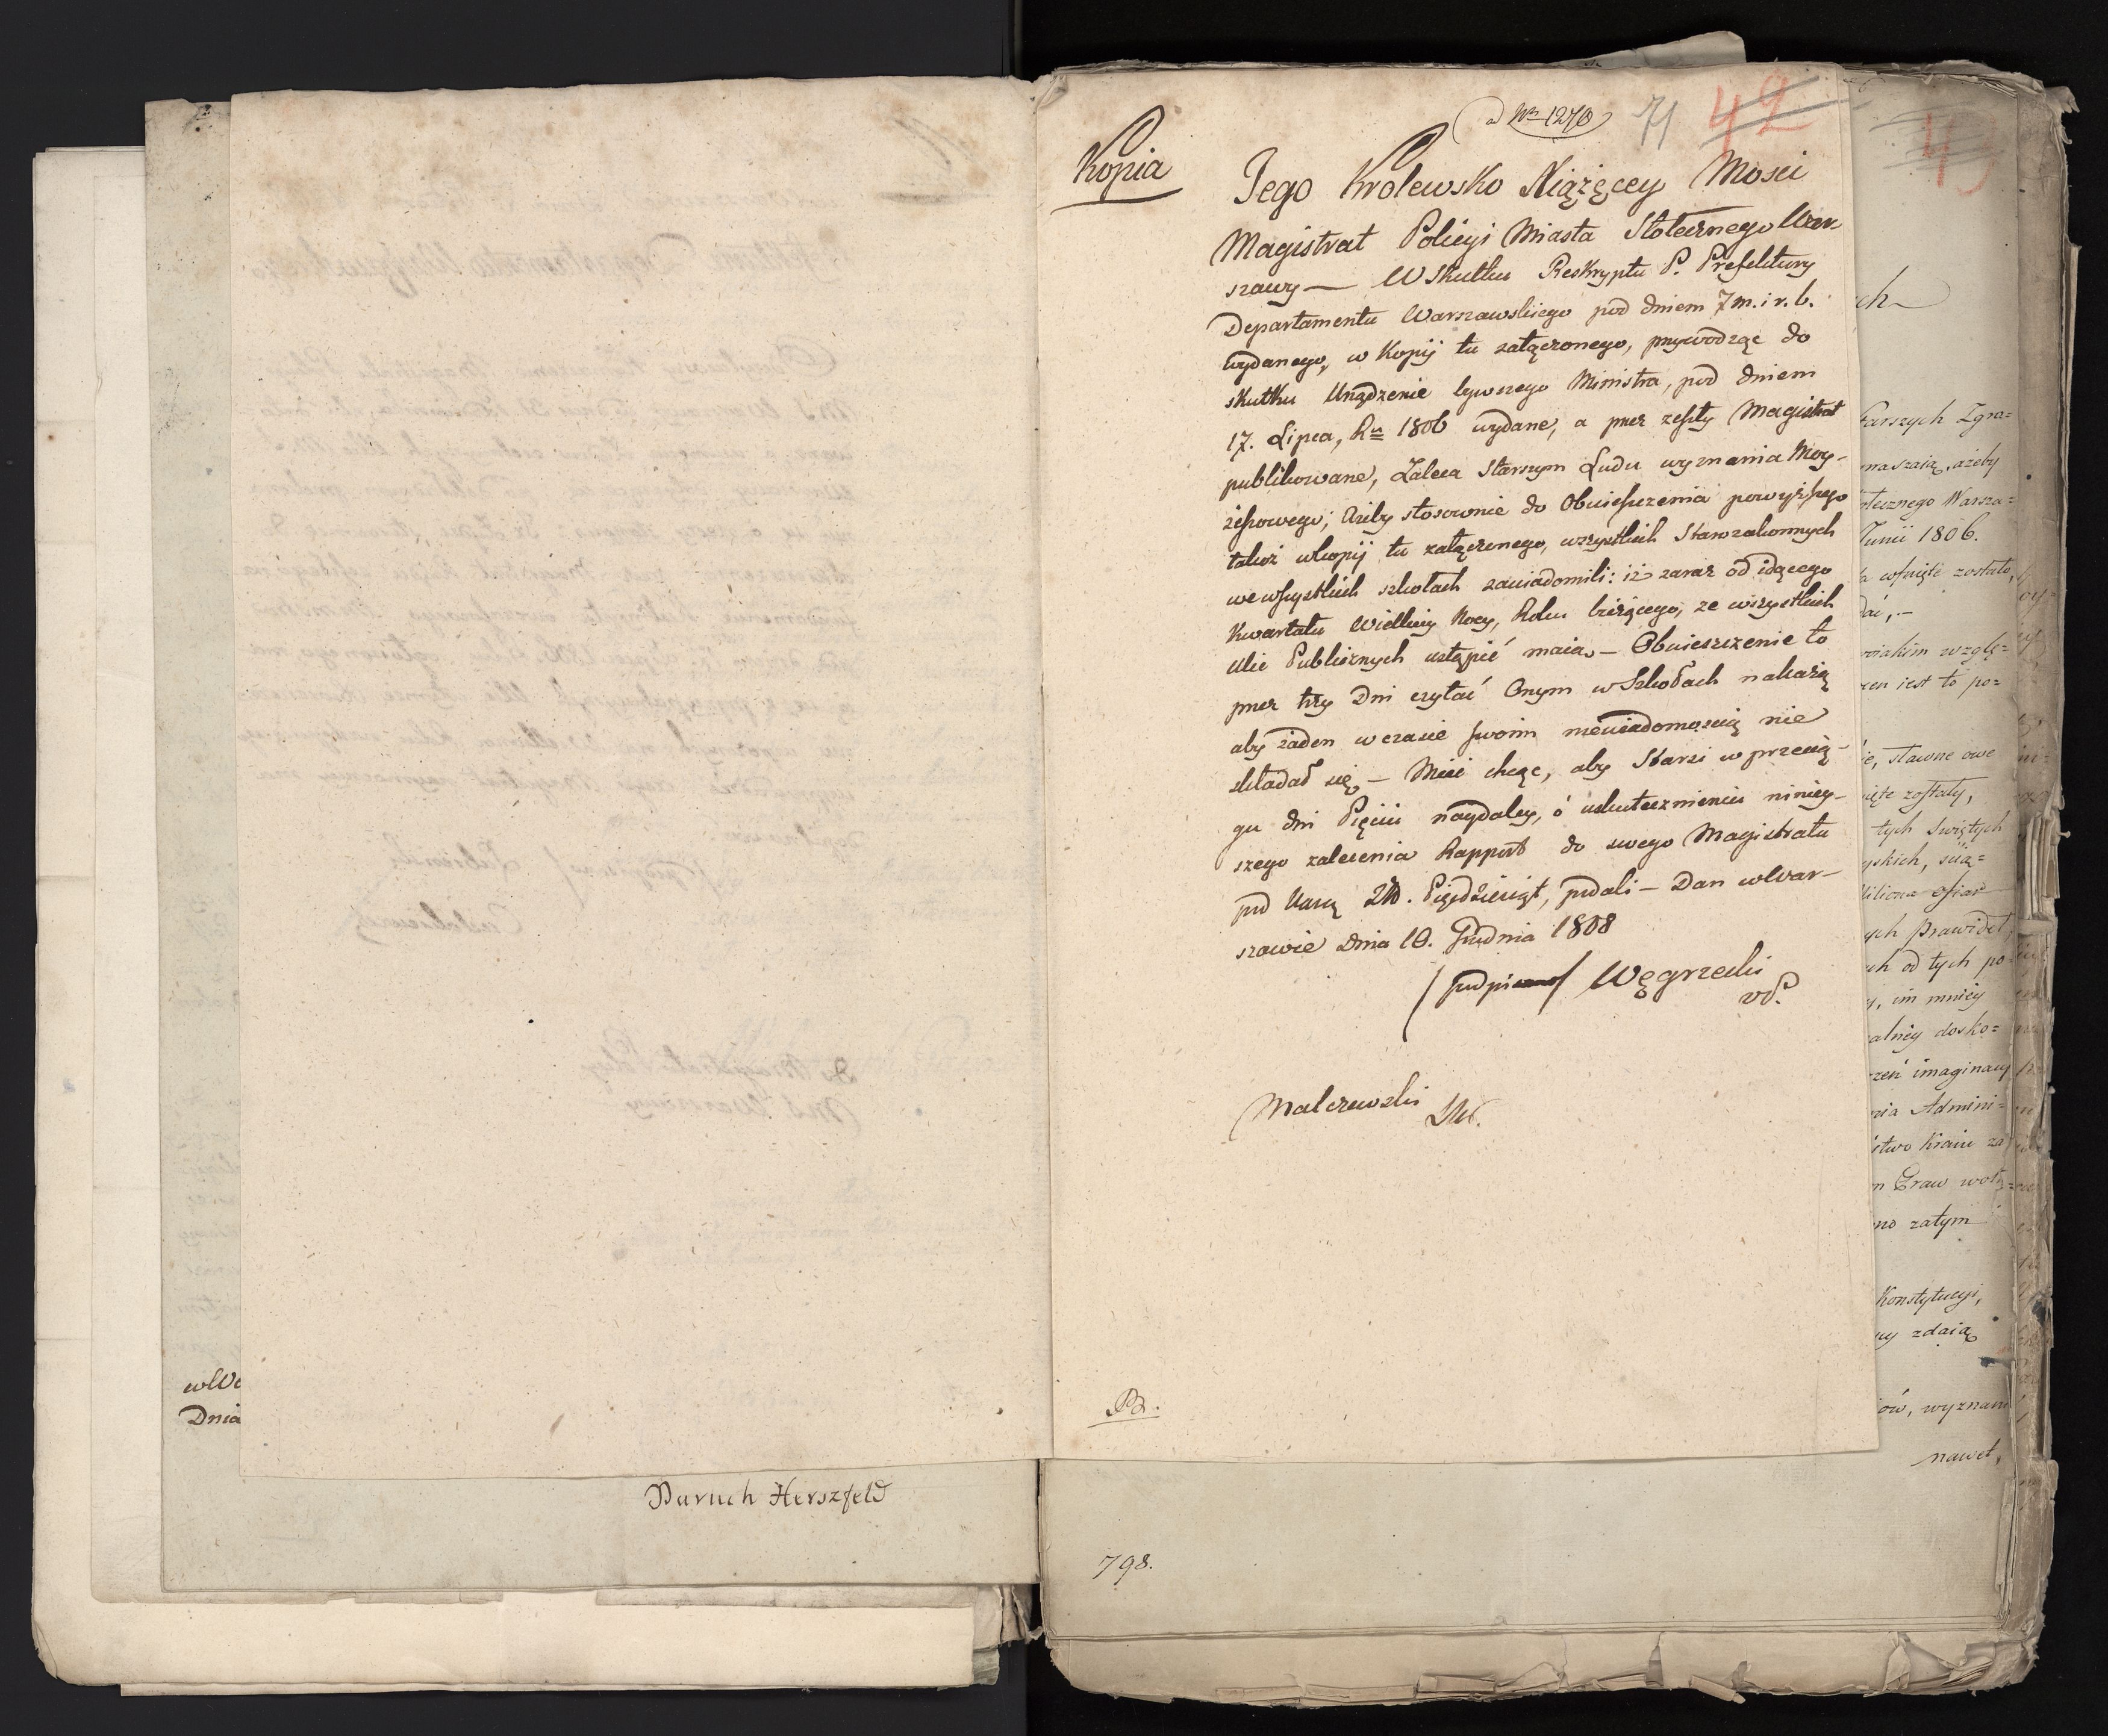 wWa
Dnia
Baruch Herszfeld
ad Nro 1270
71
42
Kopia
Jego Królewsko Xiążęcey Mosci
Magistrat Policyi Miasta Stołecznego War-
szawy — W Skutku Reskryptu P. Prefektury
Departamentu Warszawskiego pod dniem 7 m. i r. b.
wydanego, w Kopij tu załączonego, przywodząc do
skutku Urządzenie bywszego Ministra, pod dniem
17. Lipca, Ru 1806 wydane, a przez zeszły Magistrat
publikowane, Zaleca Starszym Ludu wyznania Moy-
żeszowego; Ażeby stosownie do Obwieszczenia powyższego
także w kopij tu załączonego, wszystkich Starozakonnych
we wszystkich szkołach zawiadomili: iż zaraz od idącego
Kwartału Wielkiey Nocy, Roku bieżącego, ze wszystkich
Ulic Publicznych ustąpić maią — Obwieszczenie to
przez trzy Dni czytać Onym w Szkołach nakażą
aby żaden w czasie swoim niewiadomością nie
składał się — Mieć chcąc, aby Starsi w przecią-
gu dni Pięciu naydaley, o uskutecznieniu niniey-
szego zalecenia Rapport do swego Magistratu
pod Karą Zł. Pięćdziesiąt, podali — Dan w War-
szawie Dnia 10. Grudnia 1808
/ podpisano / Węgrzecki
Malczewski
798.
ch
tarszych Zgra=
naszaią, ażeby
łecznego Warsza=
Junii 1806.
cofnięte zostało,
dać, -
wiakim wzglę=
en iest to po=
ie, sławne owe
ięte zostały,
tych Swiętych
yskich, scią=
ych Prawideł,
ch od tych po
y, im mniey
alney dosko=
zeń imaginacy
nia Admini=
stwo Kraiu za
n Praw wol
no zatym
Konstytucyi,
zdaią
ów, wyznani
nawet,